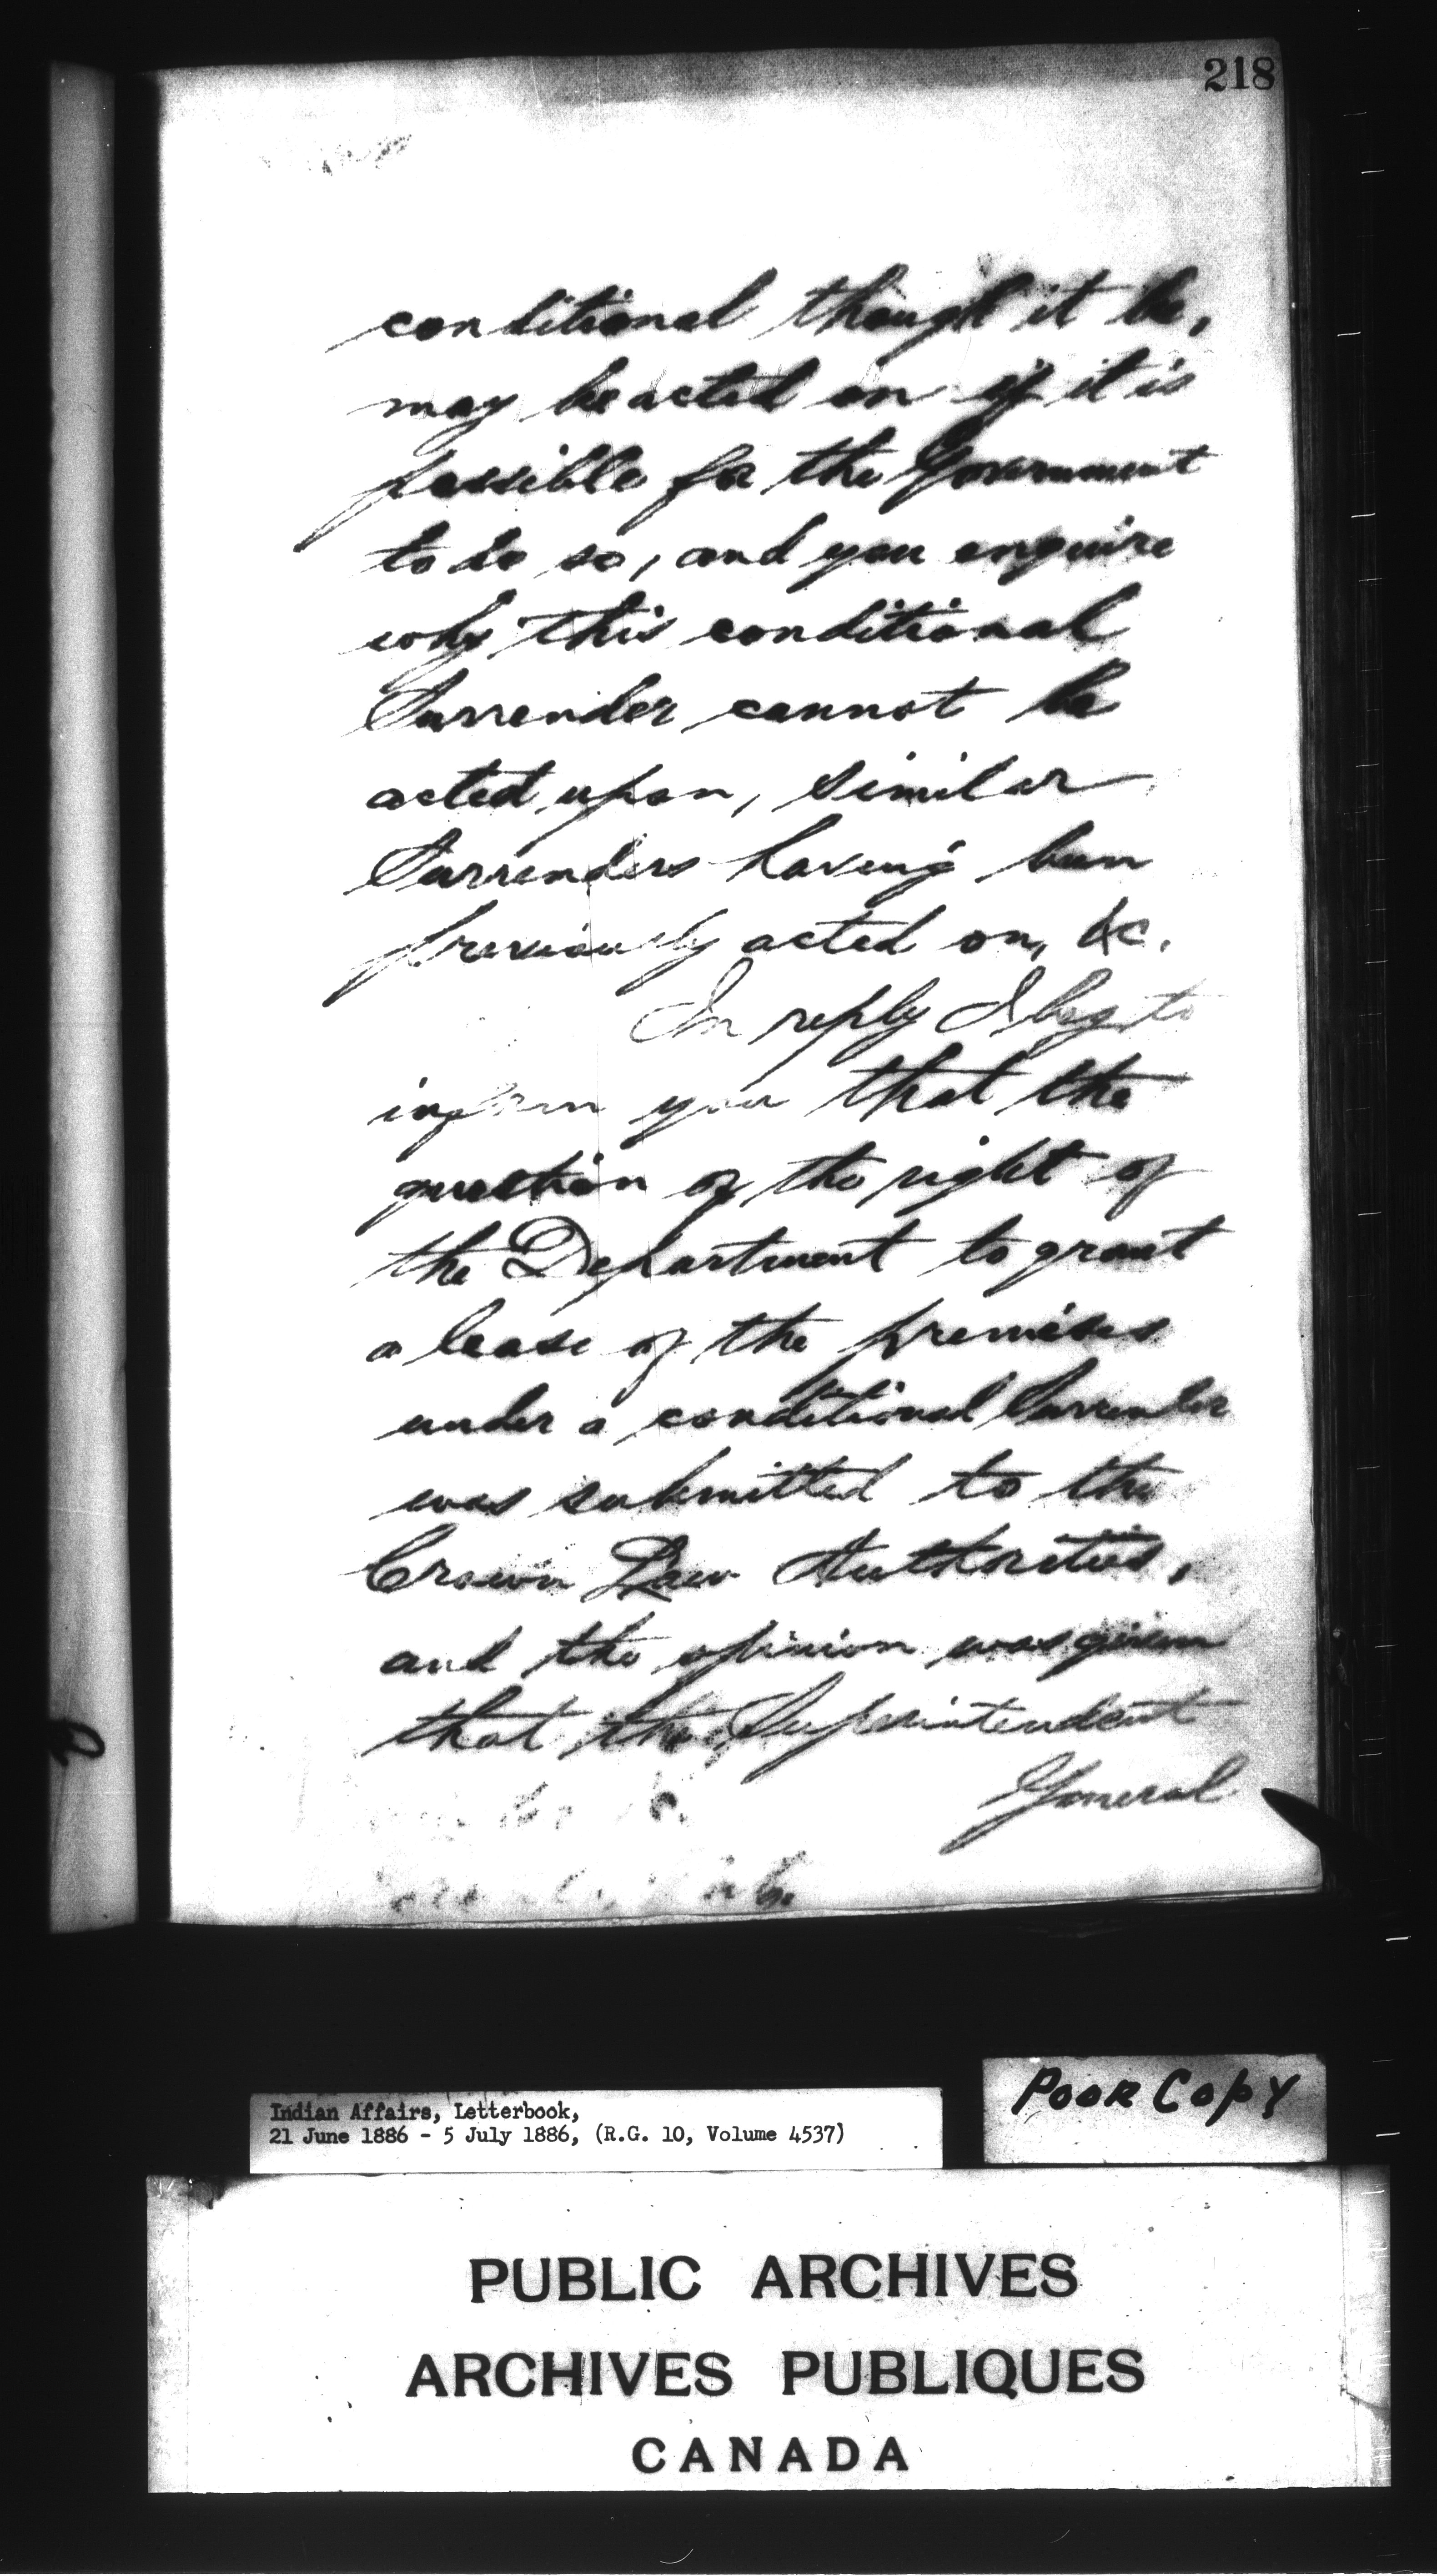 218
conditional though it be,
may be acted on if it is
possible for the Government
to do so, and you enquire
why this conditional
Surrender cannot be
acted upon, similar
Surrenders having been
previously acted on, &c.
In reply I beg to
inform you that the
question of the right of
the Department to grant
a lease of the premises
under a conditional Surrender
was submitted to the
Crown Law Authorities,
and the opinion was given
that the Superintendent
General
Poor Copy
Indian Affairs, Letterbook,
21 June 1886 - 5 July 1886, (R.G. 10, Volume 4537)
PUBLIC ARCHIVES
ARCHIVES PUBLIQUES
CANADA